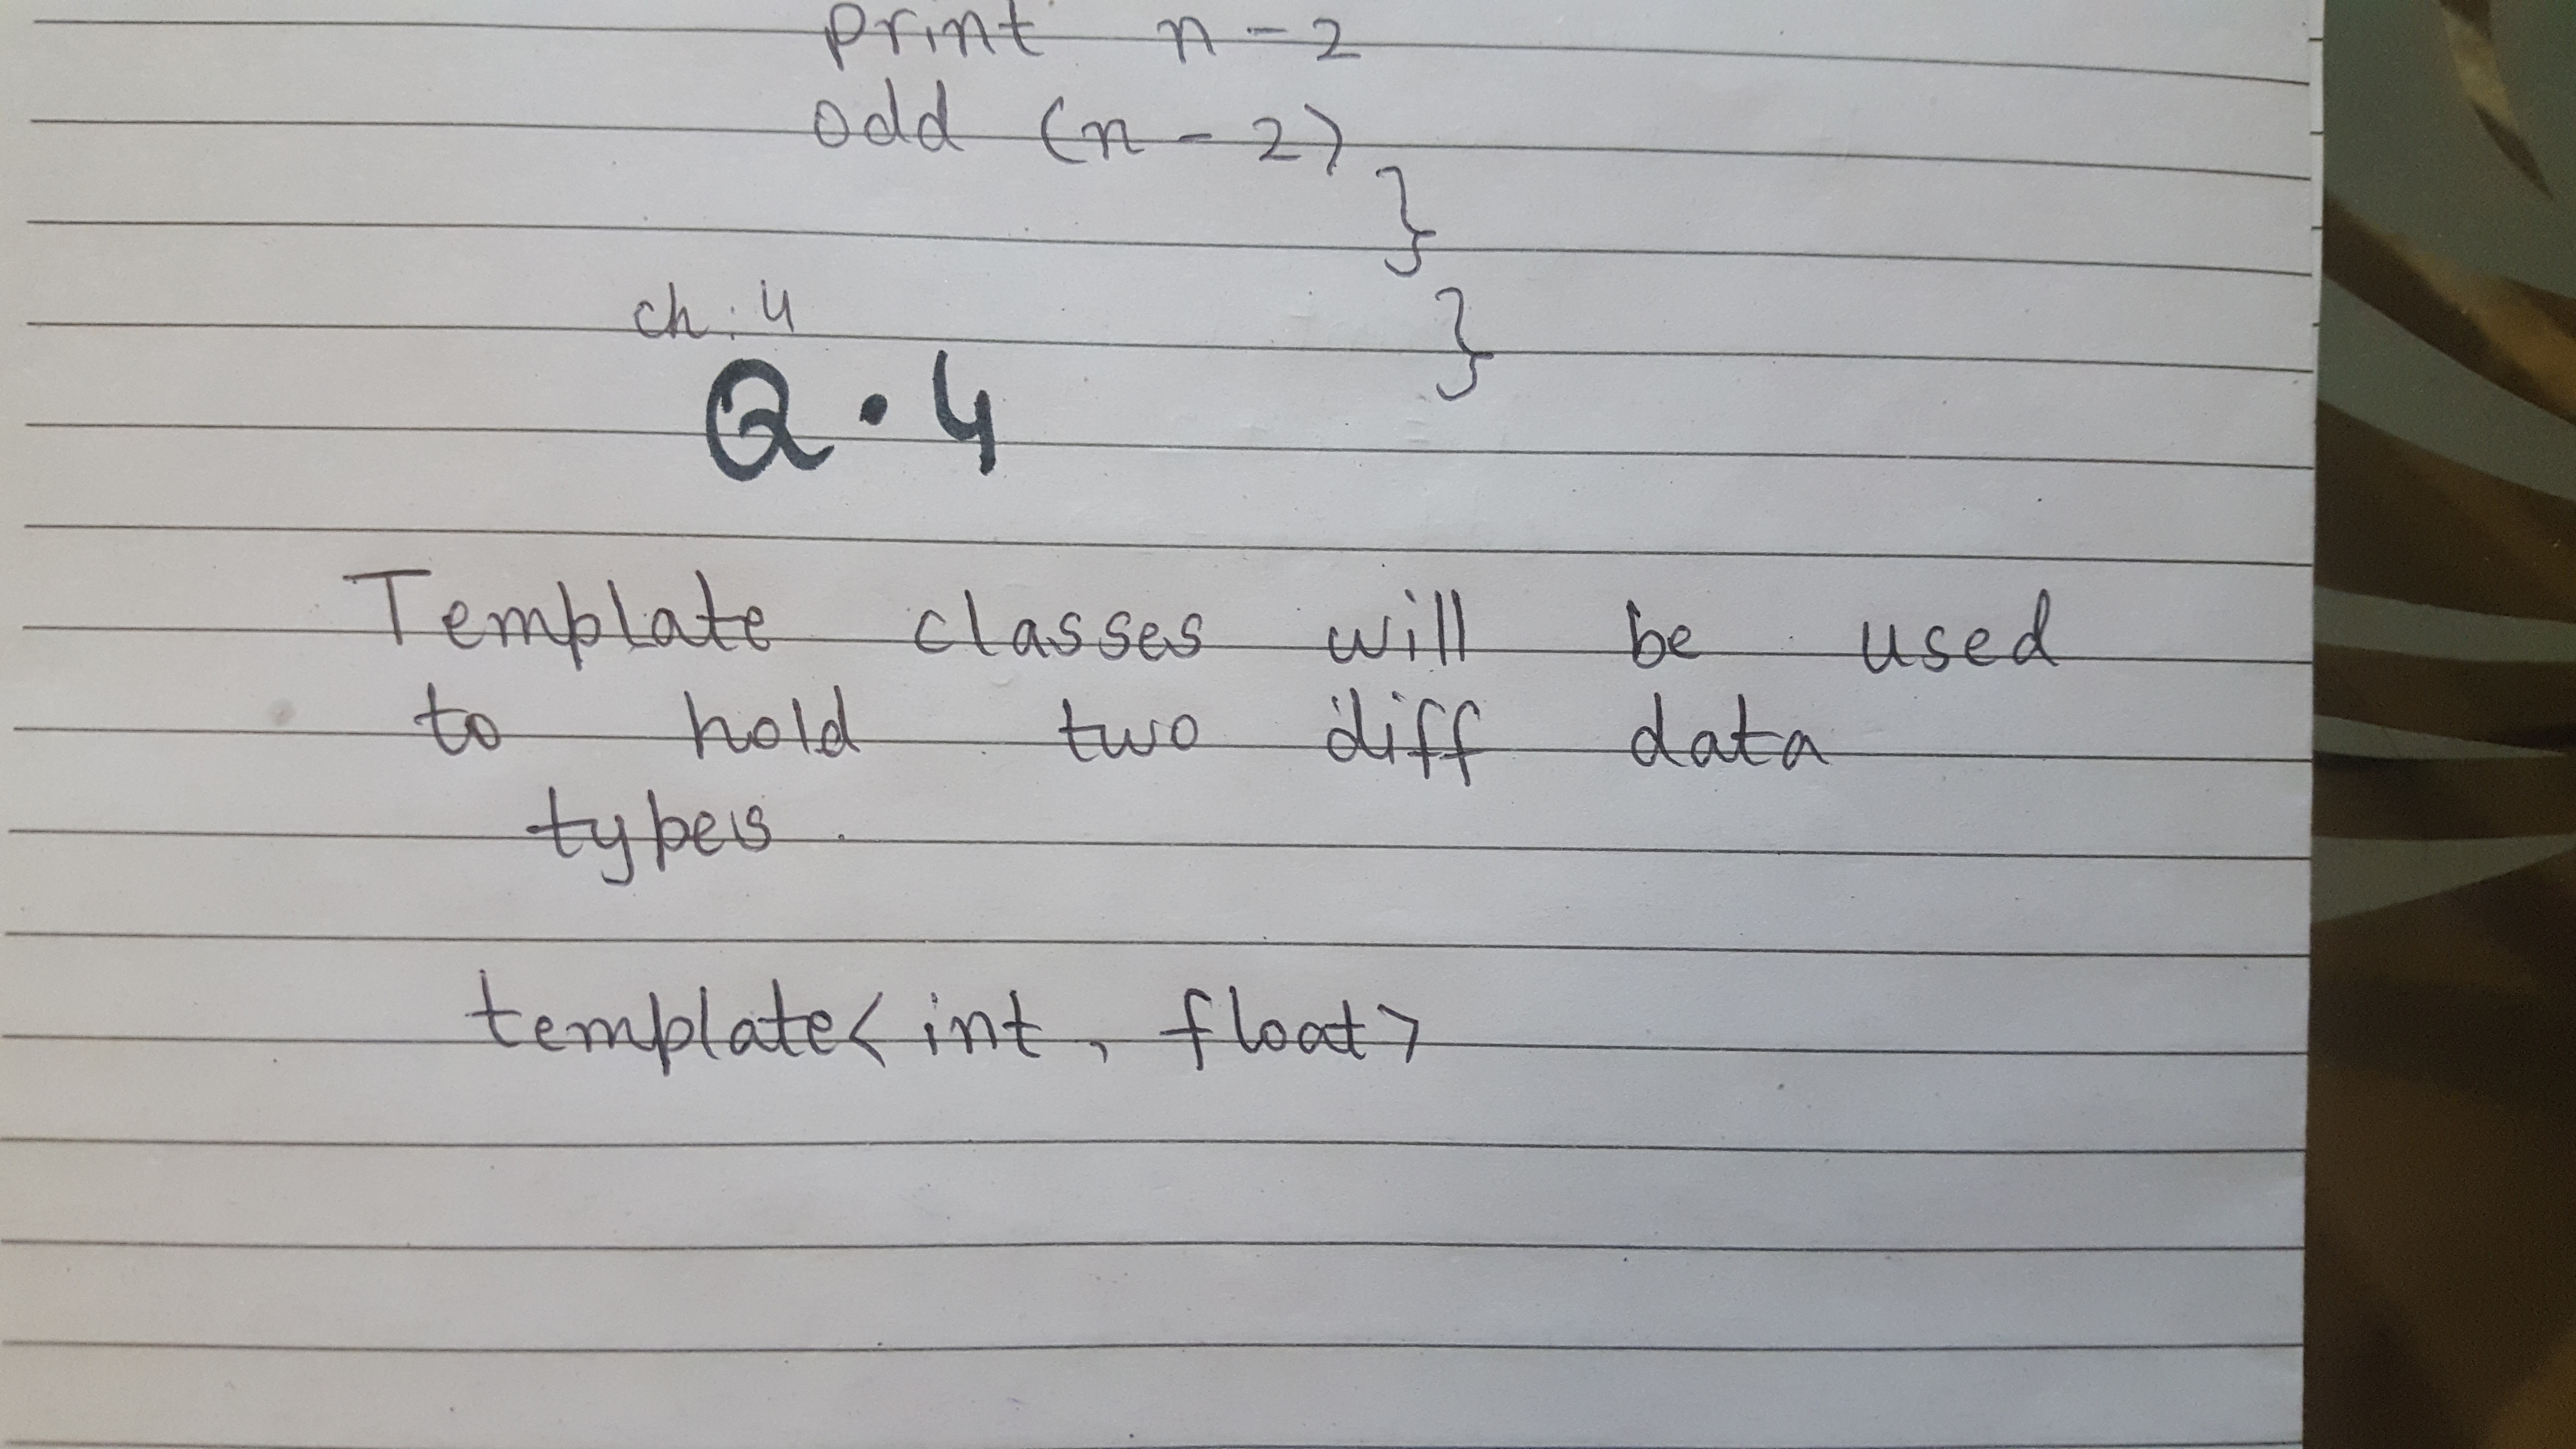 print n-2
odd (n-2)
}
}
ch.4
Q.4
Template classes will be used
to hold two diff data
types.
template<int, float>